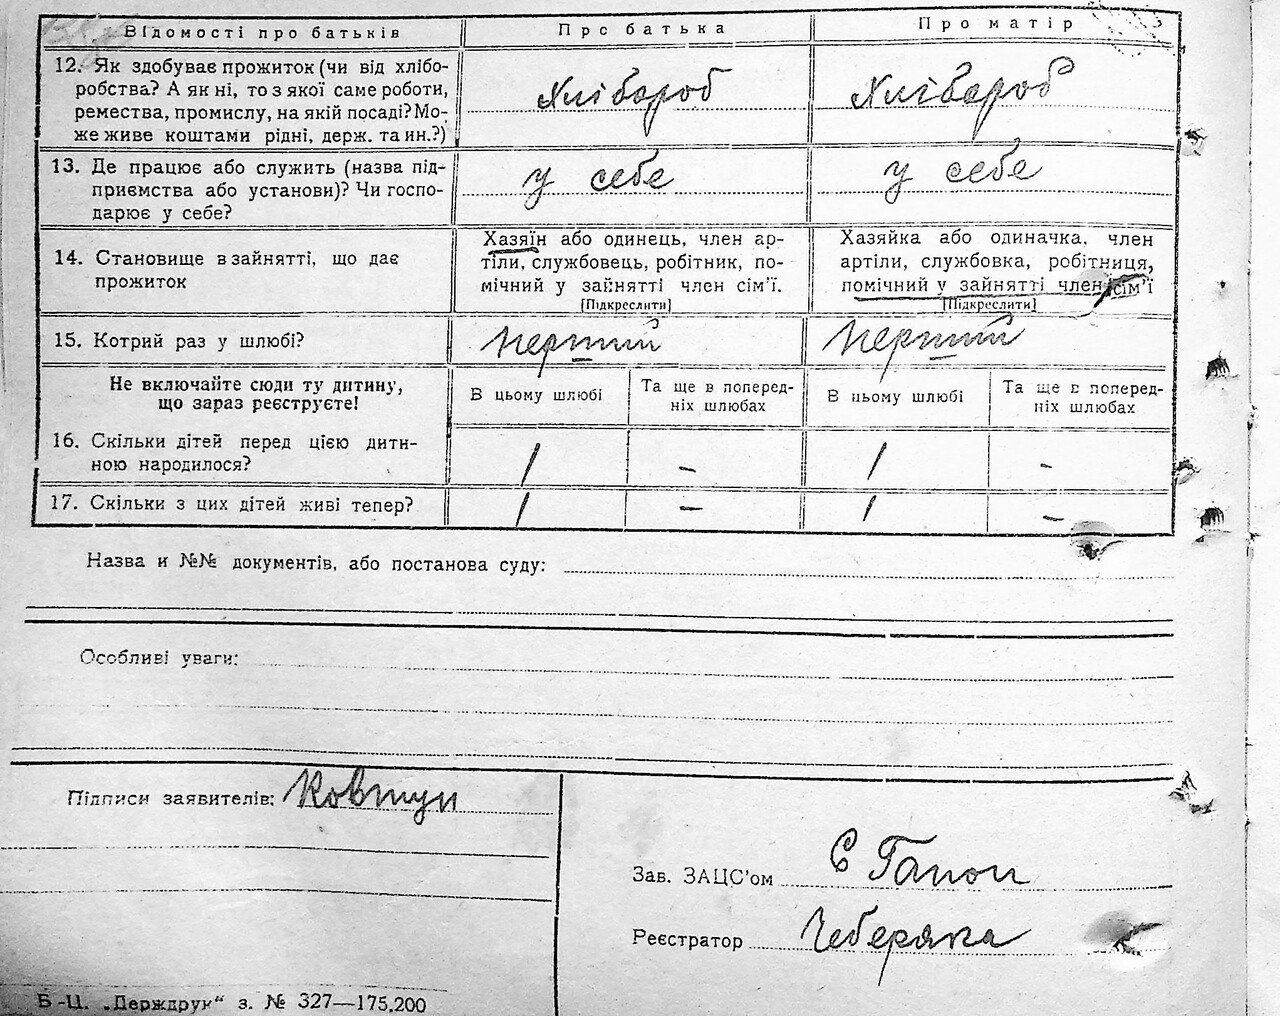 Відомості про батьків
Про батька
Про матір
12. Як здобуває прожиток (чи від хлібо-
робства? А як ні, то з якої саме роботи,
ремества, промислу, на якій посаді? Мо-
же живе коштами рідні, держ. та ин.?)
Хлібороб
Хлібороб
13. Де працює або служить (назва під-
приємства або установи)? Чи госпо-
дарює у себе?
у себе
у себе
14. Становище в зайнятті, що дає
прожиток
Хазяїн або одинець, член ар-
тіли, службовець, робітник, по-
мічний у зайнятті член сім’ї.
[Підкреслити]
Хазяйка або одиначка, член
артіли, службовка, робітниця,
помічний у зайнятті член сім’ї
[Підкреслити]
15. Котрий раз у шлюбі?
перший
перший
Не включайте сюди ту дитину,
що зараз реєструєте!
В цьому шлюбі
Та ще в поперед-
ніх шлюбах
В цьому шлюбі
Та ще в попере-
ніх шлюбах
16. Скільки дітей перед цією дити-
ною народилося?
1
-
1
-
17. Скільки з цих дітей живі тепер?
1
-
1
-
Назва и №№ документів, або постанова суду:
Особливі уваги:
Підписи заявителів: Ковтун
Зав. ЗАЦС’ом Є Гапон
Реєстратор Чеберяка
Б-Ц. „Держдрук“ з. № 327—175.200